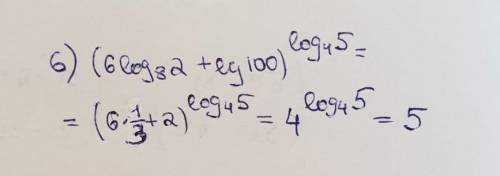 6) (6log₈2 + lg100)^log₄5 =
= (6·1/3+2)^log₄5 = 4^log₄5 = 5